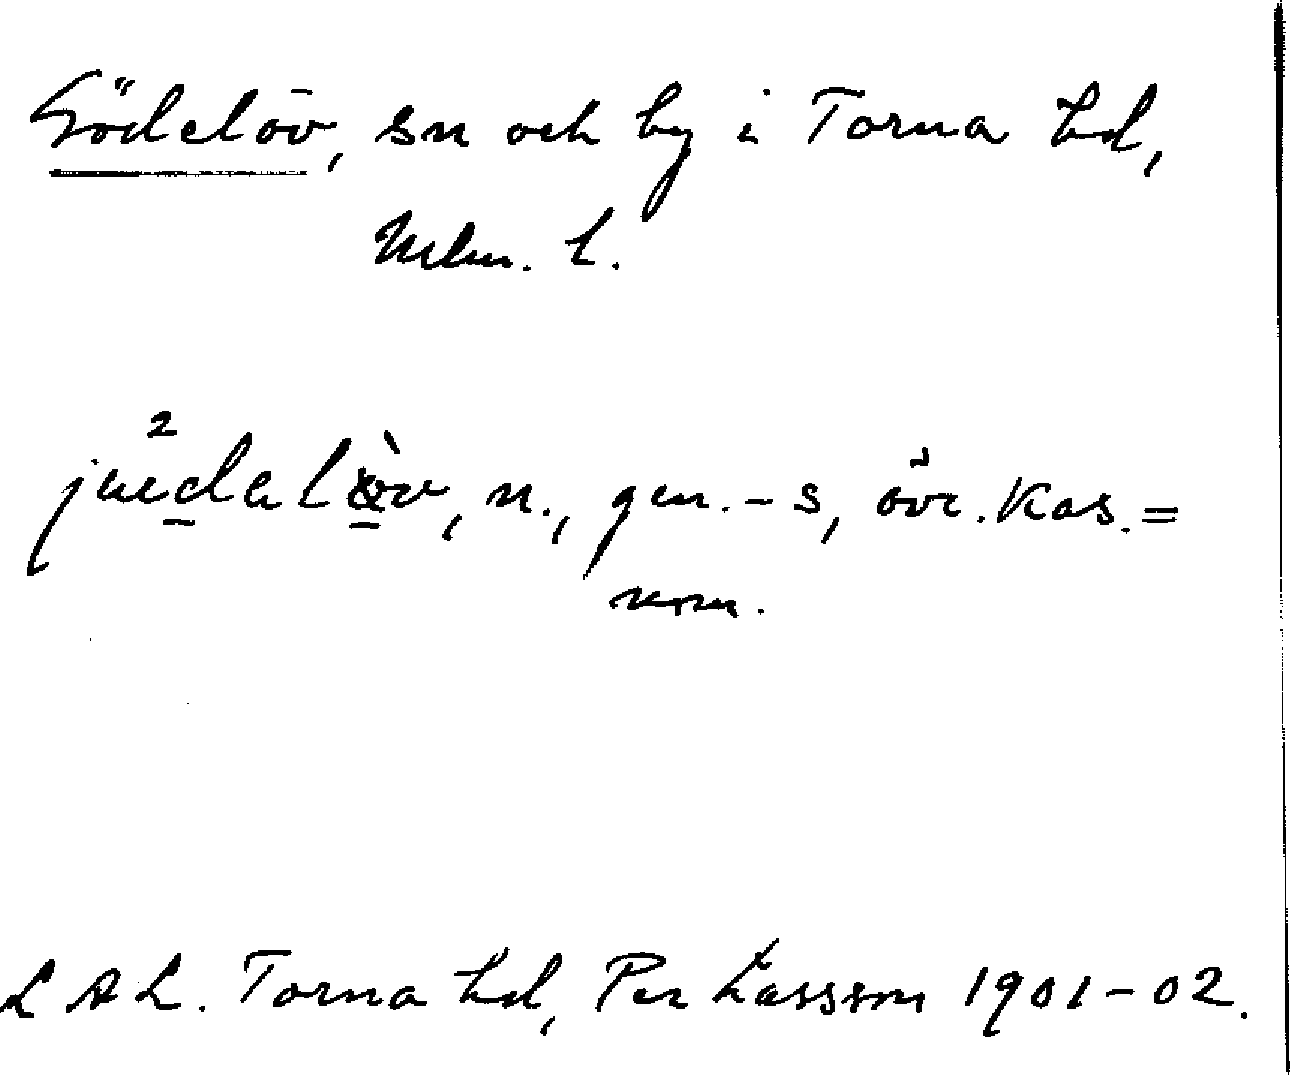 Gödelöv, sn och by i Torna hd,
Mlm. l.
n., gen. -s, övr. kas. =
nom.
LAL. Torna hd, Per Larsson 1901-02.